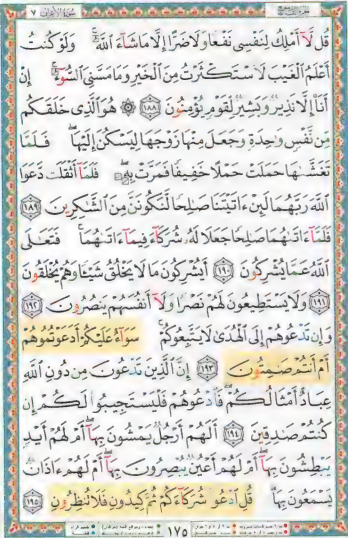 ٧ سورة الأعراف
قُل لَّآ أَمْلِكُ لِنَفْسِى نَفْعًا وَلَا ضَرًّا إِلَّا مَا شَآءَ ٱللَّهُ ۚ وَلَوْ كُنتُ
أَعْلَمُ ٱلْغَيْبَ لَٱسْتَكْثَرْتُ مِنَ ٱلْخَيْرِ وَمَا مَسَّنِىَ ٱلسُّوٓءُ ۚ إِنْ
أَنَا۠ إِلَّا نَذِيرٌ وَبَشِيرٌ لِّقَوْمٍ يُؤْمِنُونَ ١٨٨ ۞ هُوَ ٱلَّذِى خَلَقَكُم
مِّن نَّفْسٍ وَٰحِدَةٍ وَجَعَلَ مِنْهَا زَوْجَهَا لِيَسْكُنَ إِلَيْهَا ۖ فَلَمَّا
تَغَشَّىٰهَا حَمَلَتْ حَمْلًا خَفِيفًا فَمَرَّتْ بِهِۦ ۖ فَلَمَّآ أَثْقَلَت دَّعَوَا
ٱللَّهَ رَبَّهُمَا لَئِنْ ءَاتَيْتَنَا صَٰلِحًا لَّنَكُونَنَّ مِنَ ٱلشَّٰكِرِينَ ١٨٩
فَلَمَّآ ءَاتَىٰهُمَا صَٰلِحًا جَعَلَا لَهُۥ شُرَكَآءَ فِيمَآ ءَاتَىٰهُمَا ۚ فَتَعَٰلَى
ٱللَّهُ عَمَّا يُشْرِكُونَ ١٩٠ أَيُشْرِكُونَ مَا لَا يَخْلُقُ شَيْـًٔا وَهُمْ يُخْلَقُونَ
١٩١ وَلَا يَسْتَطِيعُونَ لَهُمْ نَصْرًا وَلَآ أَنفُسَهُمْ يَنصُرُونَ ١٩٢
وَإِن تَدْعُوهُمْ إِلَى ٱلْهُدَىٰ لَا يَتَّبِعُوكُمْ ۚ سَوَآءٌ عَلَيْكُمْ أَدَعَوْتُمُوهُمْ
أَمْ أَنتُمْ صَٰمِتُونَ ١٩٣ إِنَّ ٱلَّذِينَ تَدْعُونَ مِن دُونِ ٱللَّهِ
عِبَادٌ أَمْثَالُكُمْ ۖ فَٱدْعُوهُمْ فَلْيَسْتَجِيبُوا۟ لَكُمْ إِن
كُنتُمْ صَٰدِقِينَ ١٩٤ أَلَهُمْ أَرْجُلٌ يَمْشُونَ بِهَآ ۖ أَمْ لَهُمْ أَيْدٍ
يَبْطِشُونَ بِهَآ ۖ أَمْ لَهُمْ أَعْيُنٌ يُبْصِرُونَ بِهَآ ۖ أَمْ لَهُمْ ءَاذَانٌ
يَسْمَعُونَ بِهَا ۗ قُلِ ٱدْعُوا۟ شُرَكَآءَكُمْ ثُمَّ كِيدُونِ فَلَا تُنظِرُونِ ١٩٥
١٧٥